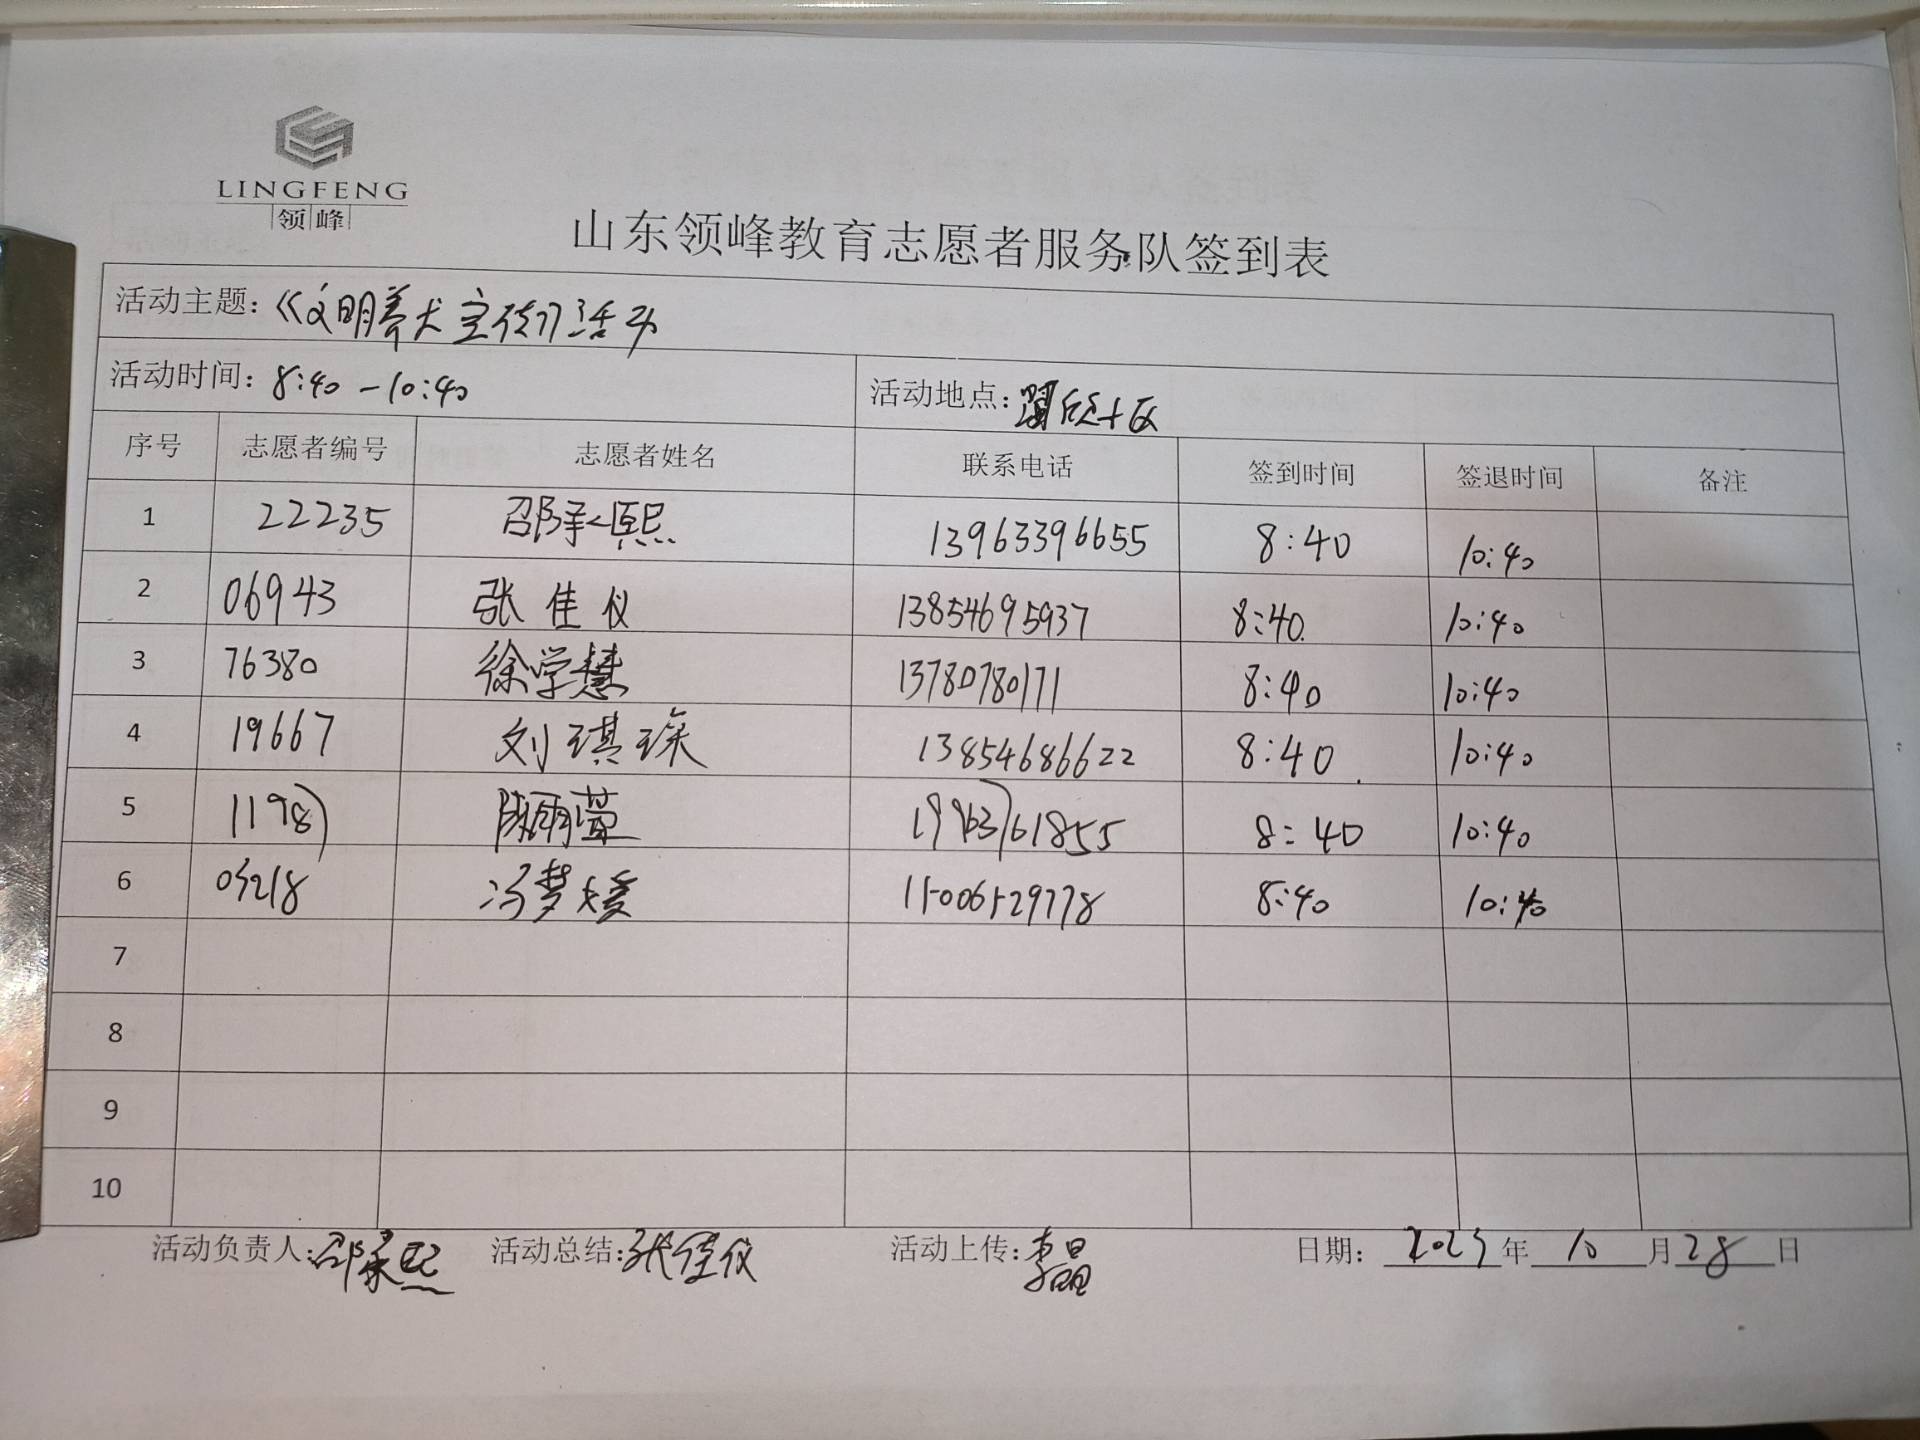 LINGFENG
领峰
山东领峰教育志愿者服务队签到表
活动主题：《文明养犬宣传》活动
活动时间：8:40-10:40 活动地点：
序号 志愿者编号 志愿者姓名 联系电话 签到时间 签退时间 备注
1 22235 邵承熙 13963396655 8:40 10:40
2 06943 张佳仪 13854695937 8:40 10:40
3 76380 徐学慧 13780780171 8:40 10:40
4 19667 刘琪琛 13854686622 8:40 10:40
5 11987 陈雨萱 19963761855 8:40 10:40
6 03218 冯梦媛 15006529778 8:40 10:40
7
8
9
10
活动负责人：邵承熙 活动总结：张佳仪 活动上传：李晶 日期：2023年10月28日